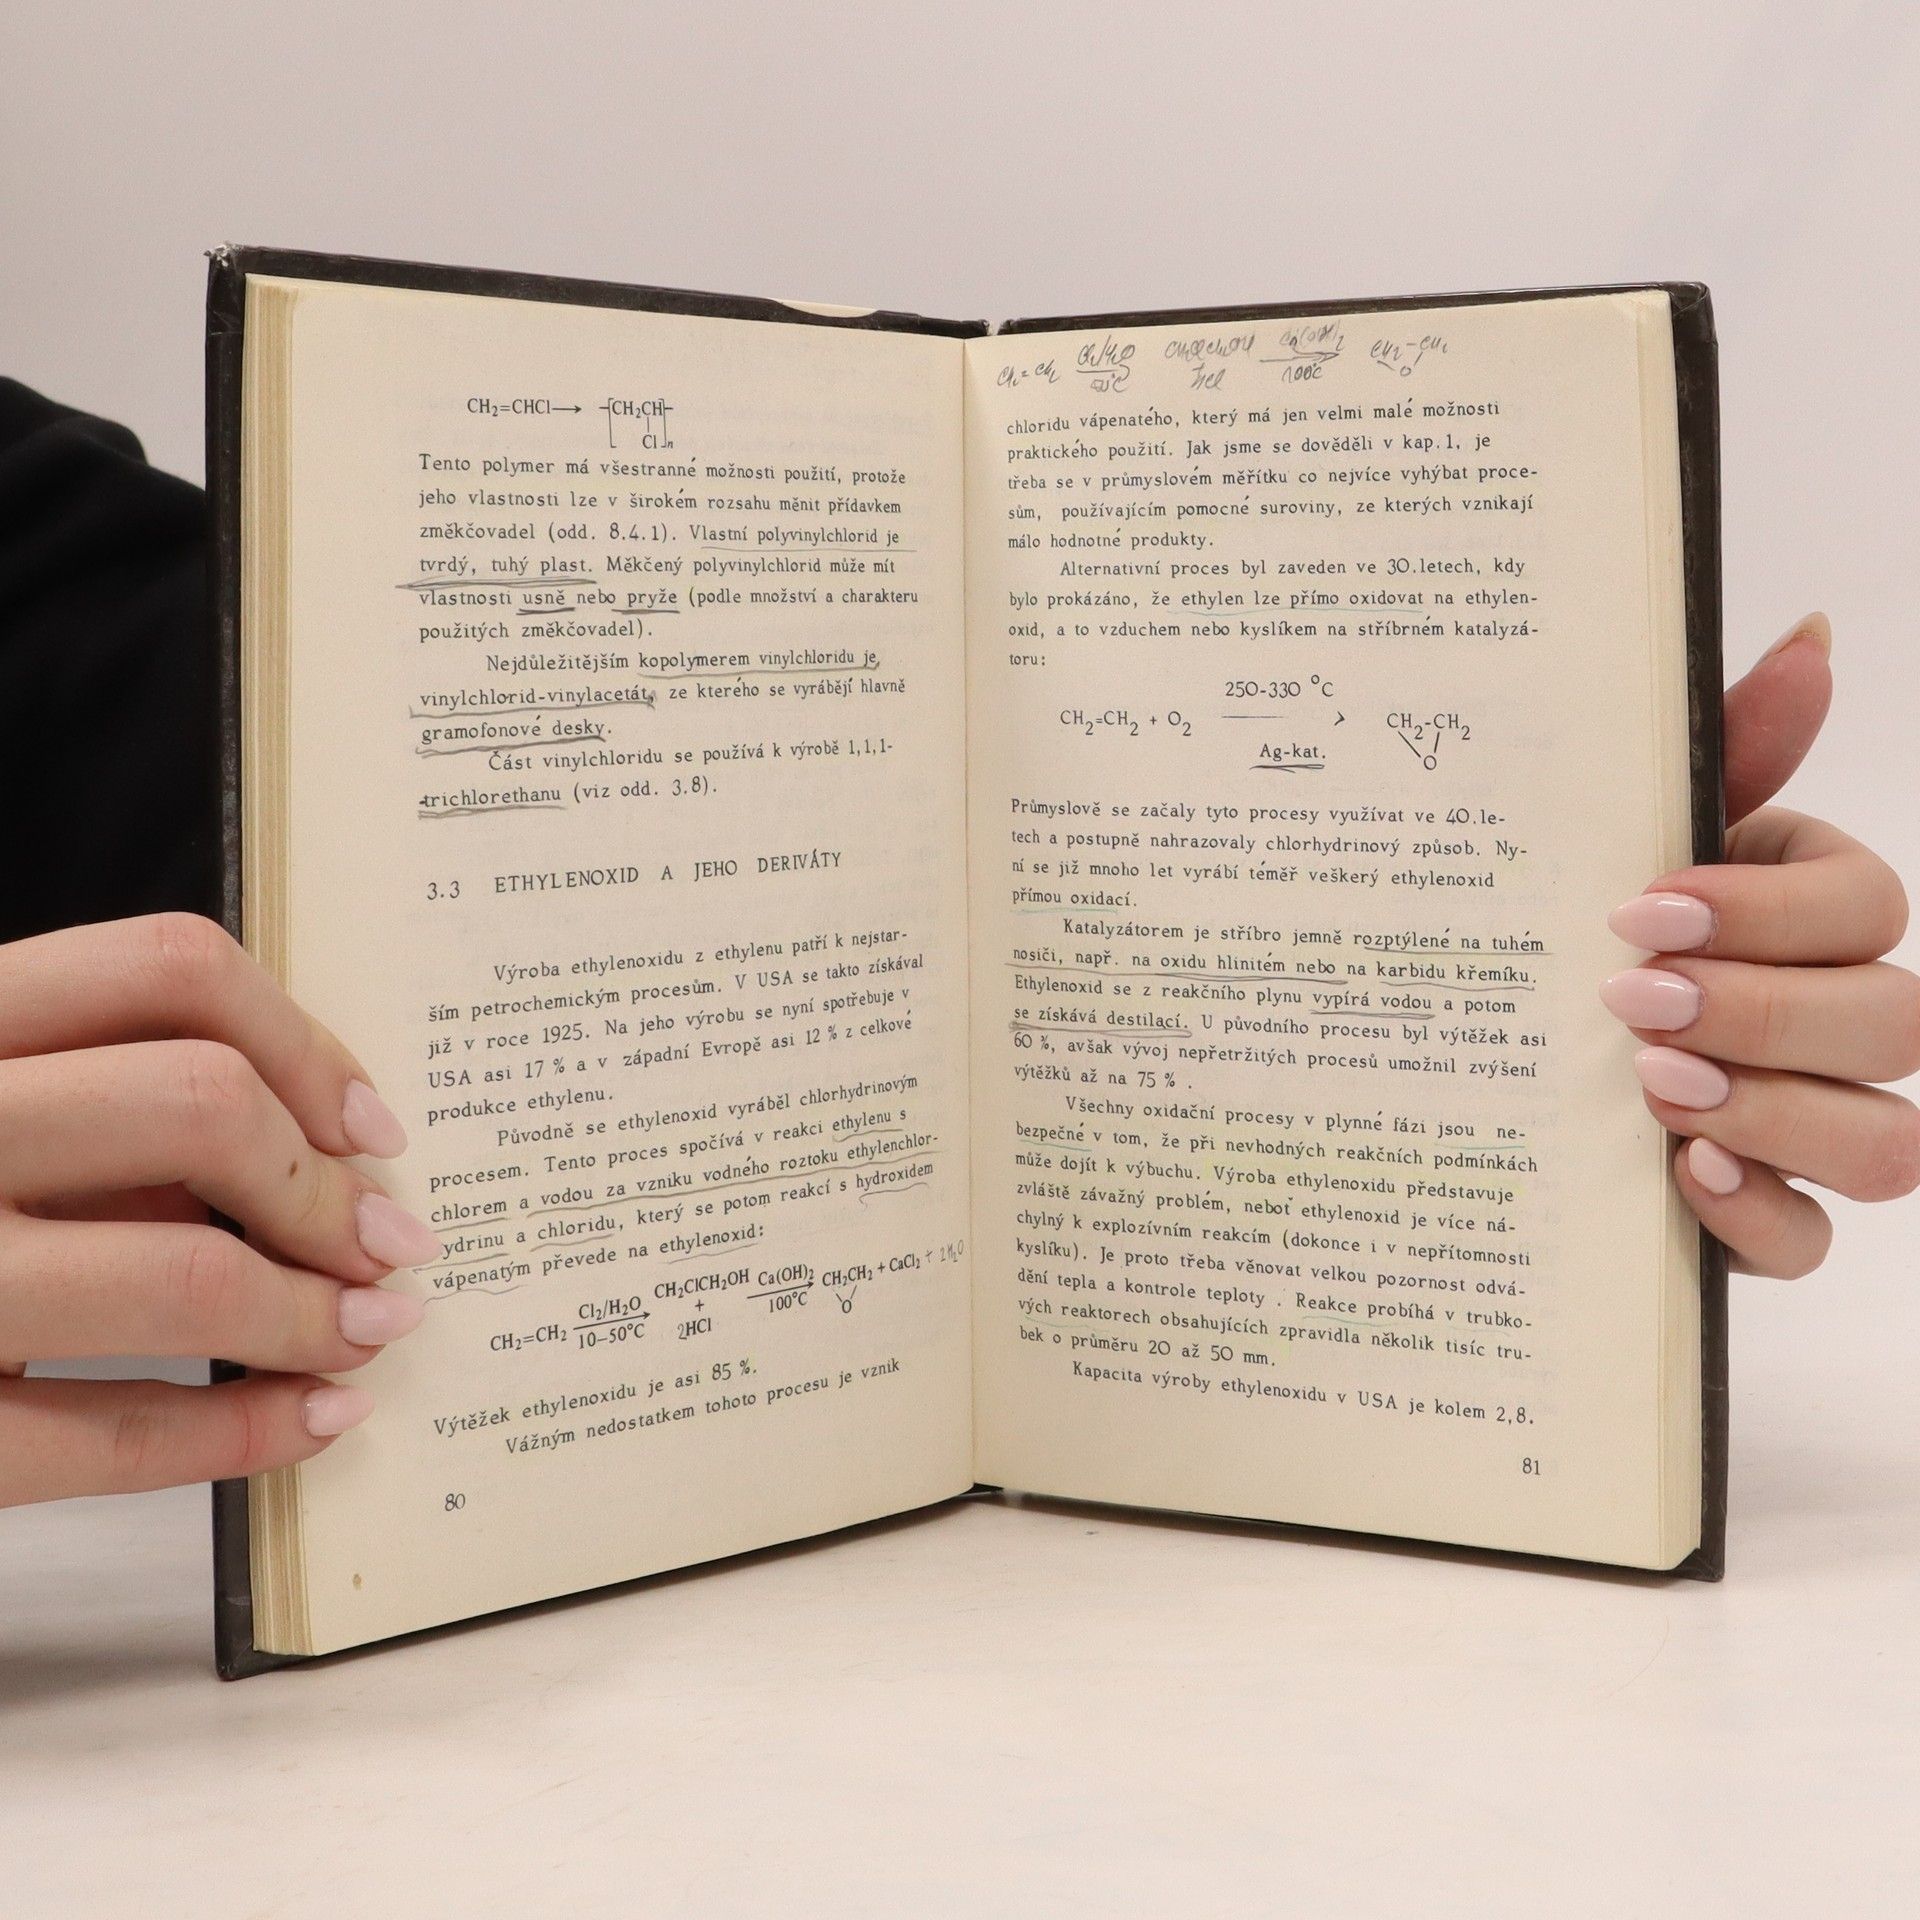 CH₂=CHCl⟶ -[CH₂CH]-
Cl n
Tento polymer má všestranné možnosti použití, protože
jeho vlastnosti lze v širokém rozsahu měnit přídavkem
změkčovadel (odd. 8.4.1). Vlastní polyvinylchlorid je
tvrdý, tuhý plast. Měkčený polyvinylchlorid může mít
vlastnosti usně nebo pryže (podle množství a charakteru
použitých změkčovadel).
Nejdůležitějším kopolymerem vinylchloridu je
vinylchlorid-vinylacetát, ze kterého se vyrábějí hlavně
gramofonové desky.
Část vinylchloridu se používá k výrobě 1,1,1-
-trichlorethanu (viz odd. 3.8).
3.3 ETHYLENOXID A JEHO DERIVÁTY
Výroba ethylenoxidu z ethylenu patří k nejstar-
ším petrochemickým procesům. V USA se takto získával
již v roce 1925. Na jeho výrobu se nyní spotřebuje v
USA asi 17 % a v západní Evropě asi 12 % z celkové
produkce ethylenu.
Původně se ethylenoxid vyráběl chlorhydrinovým
procesem. Tento proces spočívá v reakci ethylenu s
chlorem a vodou za vzniku vodného roztoku ethylenchlor-
ydrinu a chloridu, který se potom reakcí s hydroxidem
vápenatým převede na ethylenoxid:
CH₂=CH₂ Cl₂/H₂O 10–50°C CH₂ClCH₂OH + 2HCl Ca(OH)₂ 100°C CH₂CH₂ O + CaCl₂ + 2H₂O
Výtěžek ethylenoxidu je asi 85 %.
Vážným nedostatkem tohoto procesu je vznik
80
CH₂=CH₂ Cl₂/H₂O CH₂ClCH₂OH Ca(OH)₂ CH₂-CH₂
HCl 100°C O
chloridu vápenatého, který má jen velmi malé možnosti
praktického použití. Jak jsme se dověděli v kap.1, je
třeba se v průmyslovém měřítku co nejvíce vyhýbat proce-
sům, používajícím pomocné suroviny, ze kterých vznikají
málo hodnotné produkty.
Alternativní proces byl zaveden ve 30.letech, kdy
bylo prokázáno, že ethylen lze přímo oxidovat na ethylen-
oxid, a to vzduchem nebo kyslíkem na stříbrném katalyzá-
toru:
250-330 °C
CH₂=CH₂ + O₂ ⟶ CH₂-CH₂
Ag-kat. O
Průmyslově se začaly tyto procesy využívat ve 40.le-
tech a postupně nahrazovaly chlorhydrinový způsob. Ny-
ní se již mnoho let vyrábí téměř veškerý ethylenoxid
přímou oxidací.
Katalyzátorem je stříbro jemně rozptýlené na tuhém
nosiči, např. na oxidu hlinitém nebo na karbidu křemíku.
Ethylenoxid se z reakčního plynu vypírá vodou a potom
se získává destilací. U původního procesu byl výtěžek asi
60 %, avšak vývoj nepřetržitých procesů umožnil zvýšení
výtěžků až na 75 % .
Všechny oxidační procesy v plynné fázi jsou ne-
bezpečné v tom, že při nevhodných reakčních podmínkách
může dojít k výbuchu. Výroba ethylenoxidu představuje
zvláště závažný problém, neboť ethylenoxid je více ná-
chylný k explozívním reakcím (dokonce i v nepřítomnosti
kyslíku). Je proto třeba věnovat velkou pozornost odvá-
dění tepla a kontrole teploty . Reakce probíhá v trubko-
vých reaktorech obsahujících zpravidla několik tisíc tru-
bek o průměru 20 až 50 mm.
Kapacita výroby ethylenoxidu v USA je kolem 2,8.
81